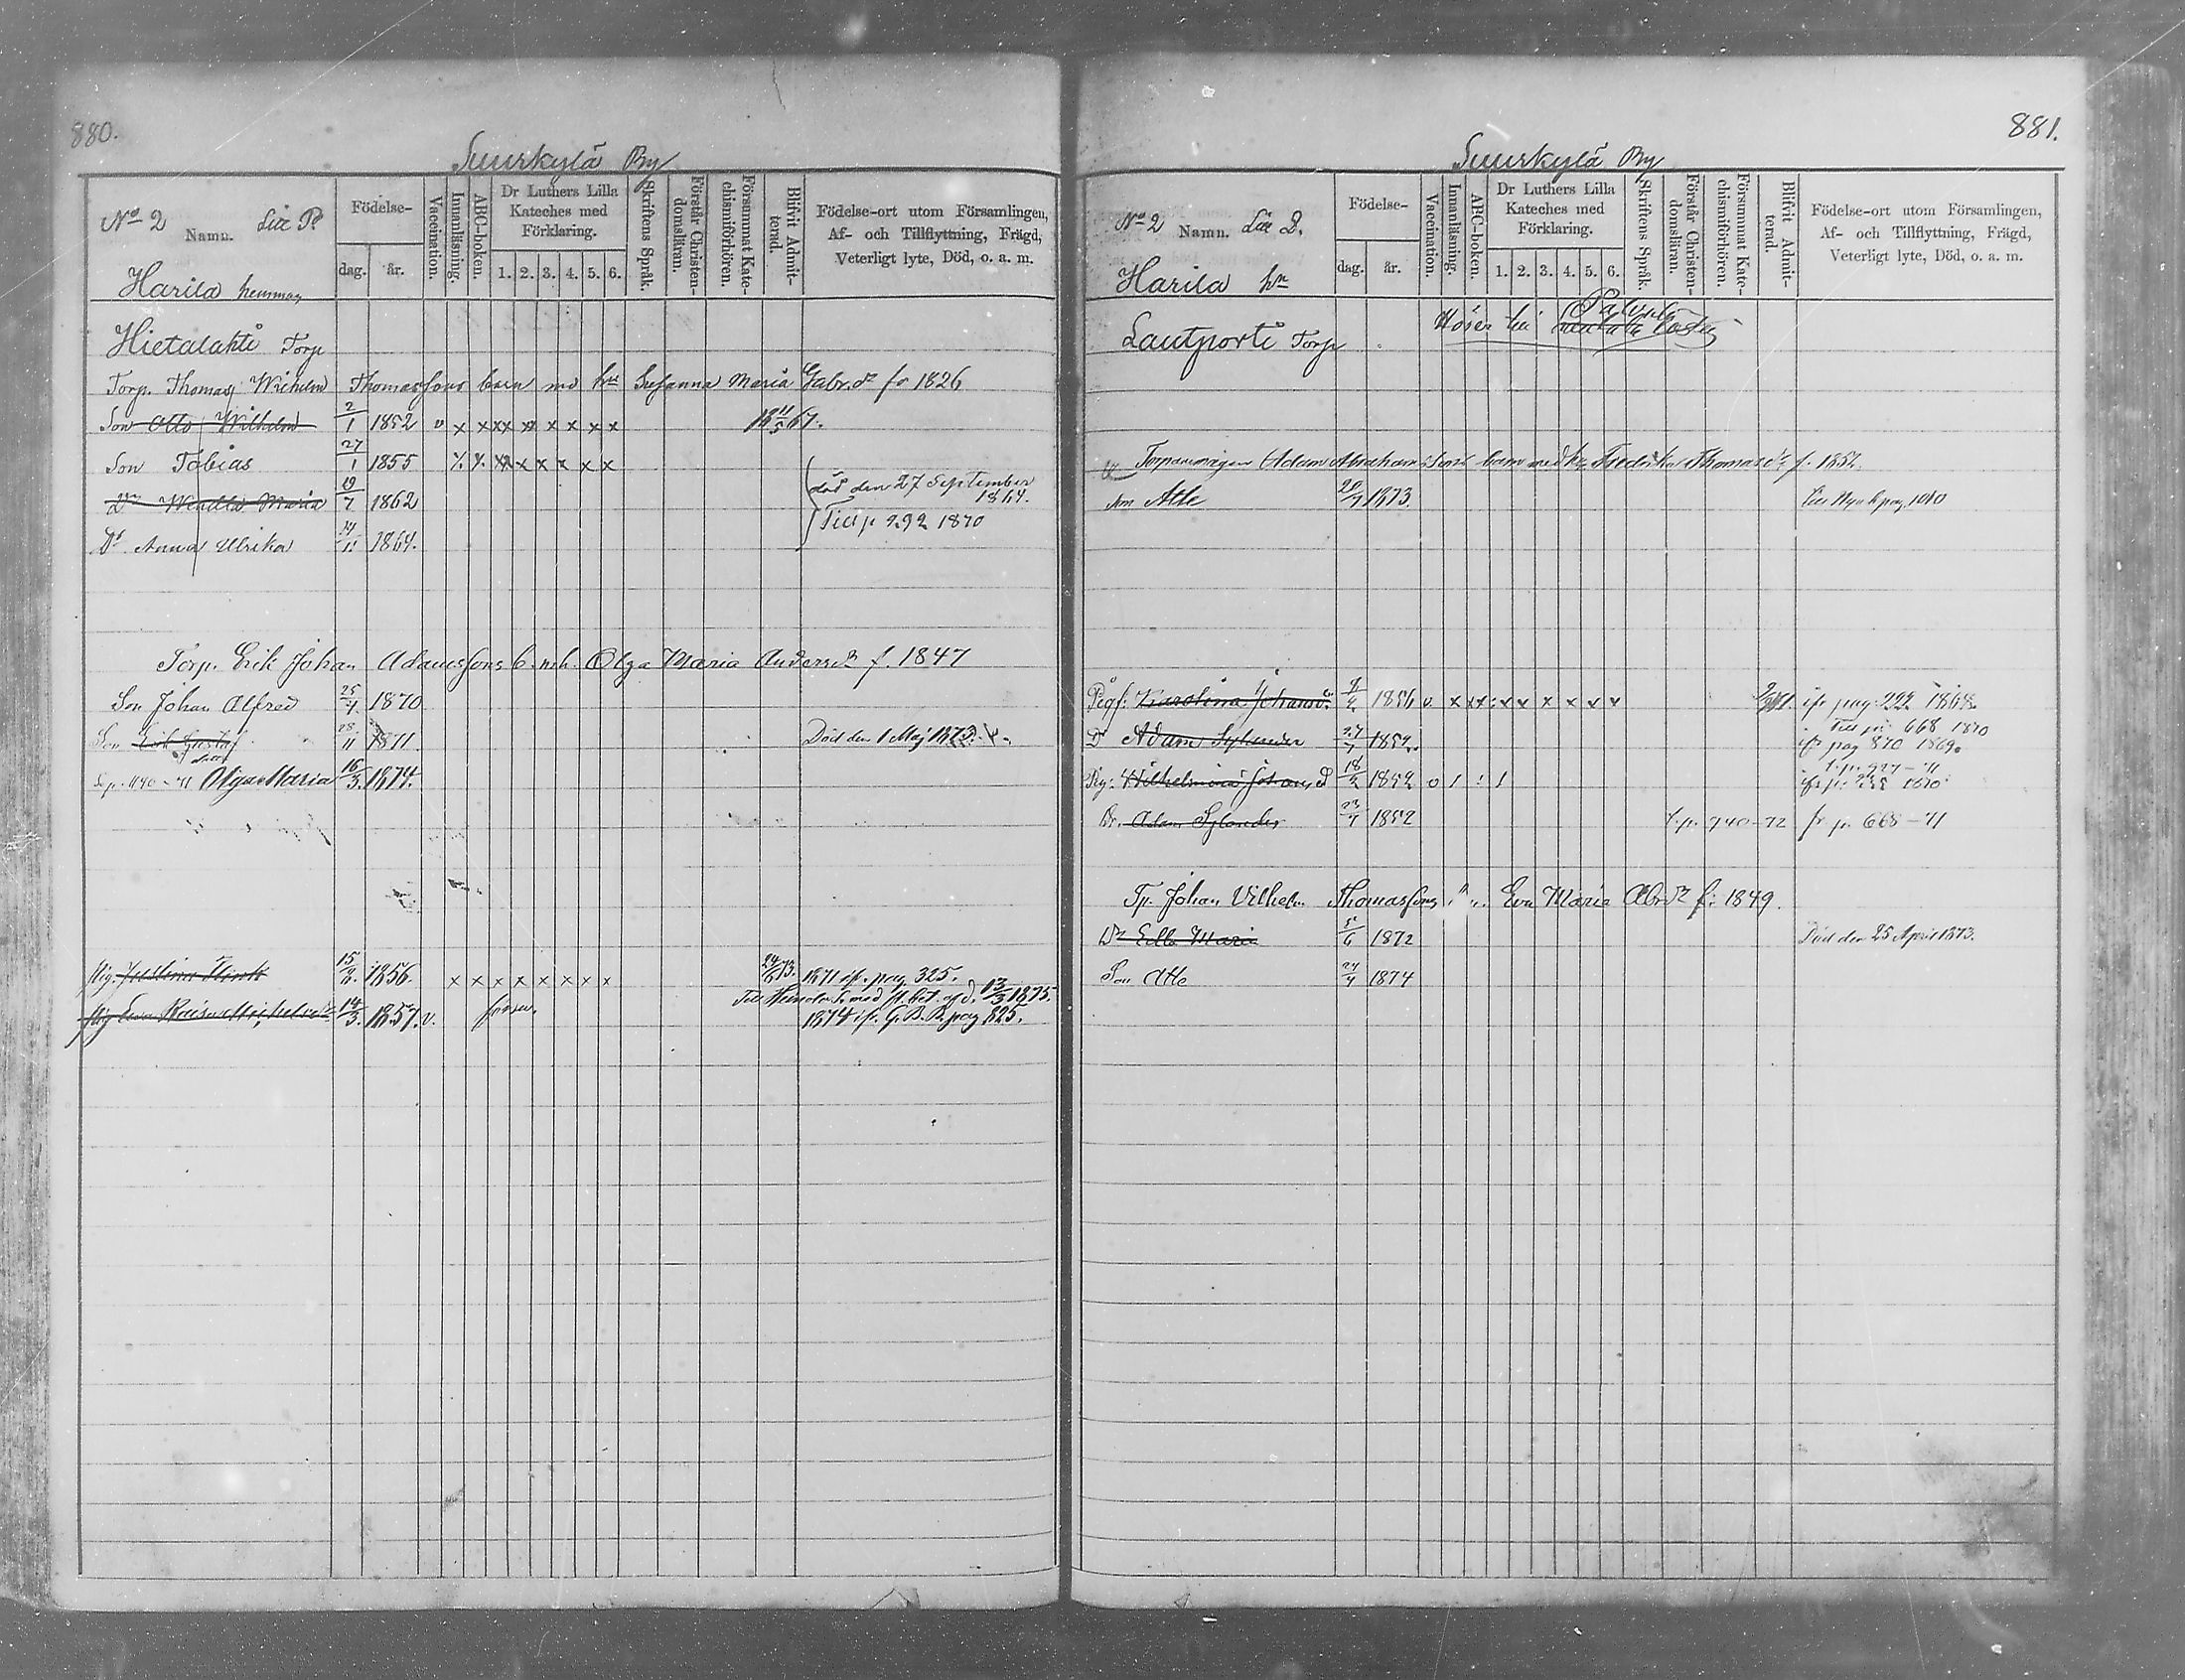 880.
Suurkylä By
No 2 Namn. Litt P
Harila hemman
Födelse-
dag. år.
Vaccination.
Innanläsning.
ABC-boken.
Dr Luthers Lilla
Kateches med
Förklaring.
1. 2. 3. 4. 5. 6.
Skriftens Språk.
Förstår Christen-
domsläran.
Försummat Kate-
chismiförhören.
Blifvit Admit-
terad.
Födelse-ort utom Församlingen,
Af- och Tillflyttning, Frägd,
Veterligt lyte, Död, o. a. m.
Hietalahti Torp
Torp. Thomas Wilhelm Thomassons barn md hu Susanna Maria Gabr.dr fö 1826
Son Otto Wilhelm 2/1 1852 v x x xx x x x x x 18 11/5 67.
Son Tobias 27/1 1855
Dr Wendla Maria 19/7 1862 död den 27 September
1864.
Till p 992 1870
Dr Anna Ulrika 1864.
Torp. Erik Johan Adamssons b. m. h. Olga Maria Andersdr f. 1847
Son Johan Alfred 25/7 1870
Son Erik Gustaf 28/11 1871. Död den 1 Maj 1873.
Olga Maria 16/3 1874.
Pig. Justina Flink 15/2 1856. x x x x x x x x 24/6 73. 1871 if. pag. 325.
Till med
13/3 1875.
Pig Eva 14/3 1857. v. 1874 if. G. B. B. pag 825.
881.
Suurkylä By
No 2 Namn. Litt D.
Harila hn
Födelse-
dag. år.
Vaccination.
Innanläsning.
ABC-boken.
Dr Luthers Lilla
Kateches med
Förklaring.
1. 2. 3. 4. 5. 6.
Skriftens Språk.
Förstår Christen-
domsläran.
Försummat Kate-
chismiförhören.
Blifvit Admit-
terad.
Födelse-ort utom Församlingen,
Af- och Tillflyttning, Frägd,
Veterligt lyte, Död, o. a. m.
Lautporti Torp
Hörer till
Torparemågen Adam Abrahamssons barn med hu Fredrika Thomasdr f. 1852
Son Atle 20/7 1873. till Nya b pag. 1010
Karolina Johansdr 1856 v x x x x x x x x if pag. 222 1868.
Till p. 668 1870
Dr Adam Sylander 27/7 1852. if pag 870 1869.
Pig. Wilhelmina Johansd 18/2 1852
Dr. Adam Sylander 23/7 1852 t. p. 940-72 fr p. 668-71
Tp. Johan Vilhelm Thomassons Eva Maria Abrdr f. 1849.
Dr Ella Maria 5/6 1872 Död den 25 April 1873.
Son Atle 27/7 1874